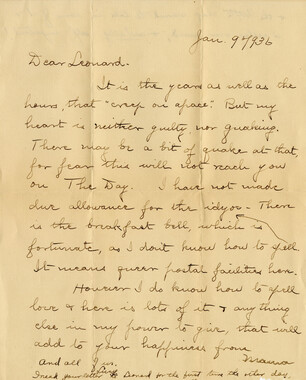 Jan. 9th 1936
Dear Leonard.
It is the years as well as the
hours, that "creep on apace". But my
heart is neither guilty nor quaking.
There may be a bit of quake at that,
for fear this will not reach you
on The Day. I have not made
due allowance for the There
is the breakfast bell, which is
fortunate, as I don't know how to spell
It means queer postal facilities here.
However I do know how to spell
love & here is lots of it & anything
else in my power to give, that will
add to your happiness from
Mama
and all of us.
I read your letter to Donard for the first time the other day.